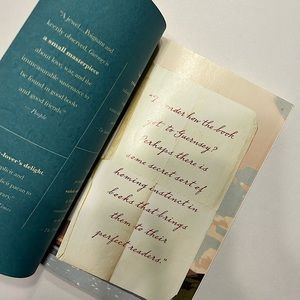 "A jewel... Poignant and
keenly observed, Guernsey is
a small masterpiece
about love, war, and the
immeasurable sustenance to
be found in good books
and good friends."
— People
-lover's delight,
"I wonder how the book
got to Guernsey?
Perhaps there is
some secret sort of
homing instinct in
books that brings
them to their
perfect readers."